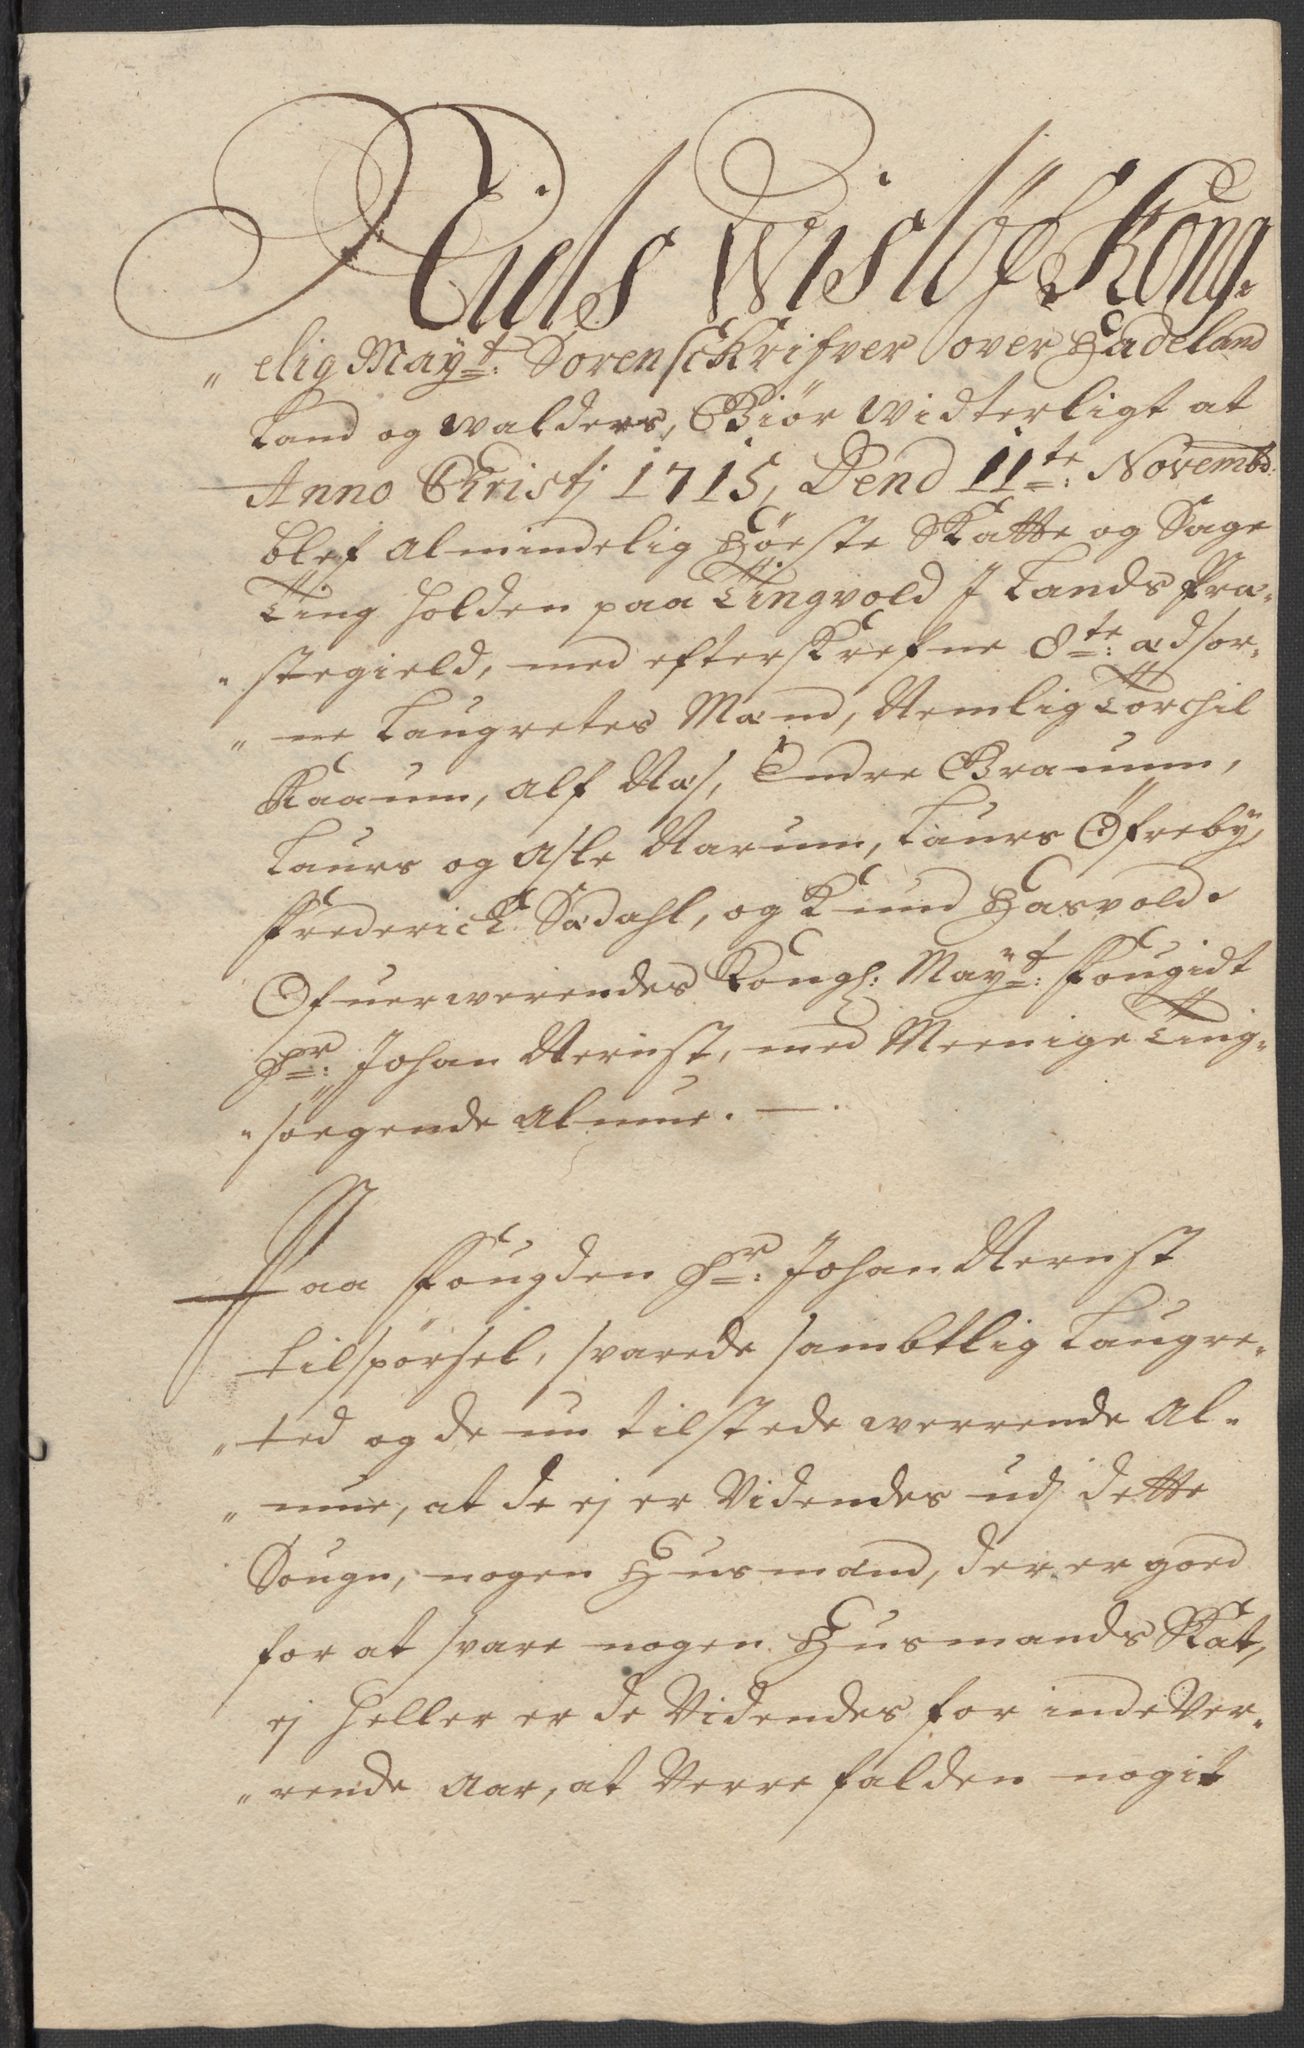 Niels Wislöf Kong-
elig Mayt: Sorenschrifver over Hadeland
Land og Walders, Giör Widterligt at
Anno Christj 1715, Dend 11te: Novembr.
blef Almindelig Höste Skatte og Sage
Ting holden paa Tingvold J Lands Præ-
stegield, med efterskrefne 8te: ædsor-
ne Laugrettes Mænd, Nemlig Torchil
Kaaum, Alf Næs, Endre Braaum,
Laurs og Asle Narum, Laurs Öfreby,
Frederich Sædahl, og Knud Hasvold.
Ofuerwerendes Kongl: Mayt: Fougidt
Hr: Johan Nernst, med Meenige Ting-
söegende Almue. —.
Paa Fougden Hr: Johan Nernst
tilspörsel, svarede sambtlig Laugre-
ted og de nu tilstede werrende Al-
mue, at de ej er Videndes udj dette
Sougn, nogen Husmænd, der er goed
for at svare nogen Husmands Skat,
ej heller er de Videndes for indeVer-
rende Aar, at Verre falden nogit